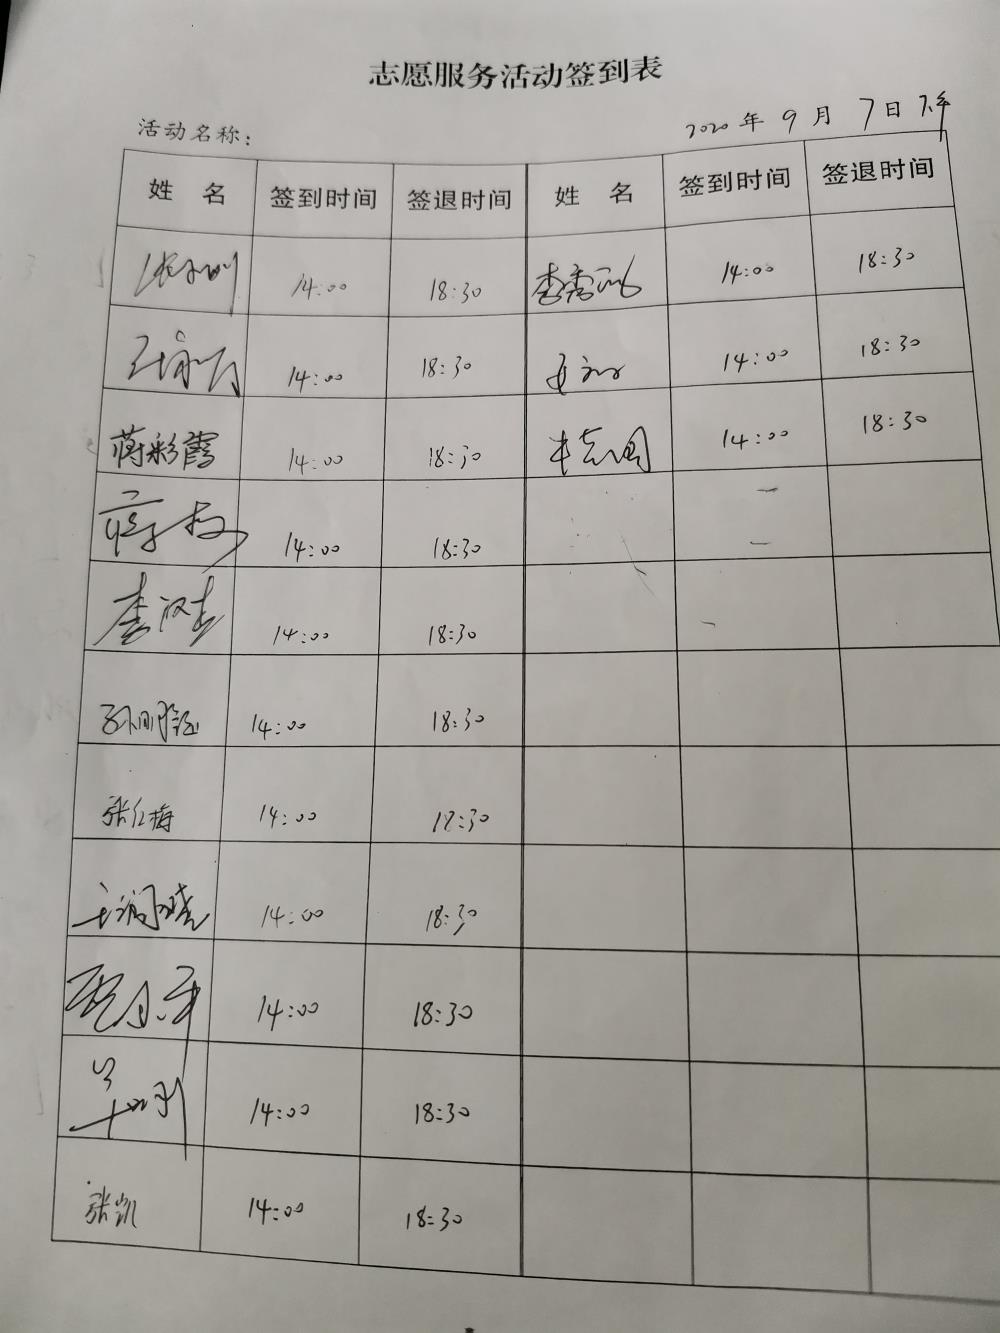 志愿服务活动签到表
活动名称： 2020年9月7日下午
姓名 签到时间 签退时间 姓名 签到时间 签退时间
14:00 18:30 李秀 14:00 18:30
14:00 18:30 14:00 18:30
蒋彩霞 14:00 18:30 牛志国 14:00 18:30
蒋 14:00 18:30
李汉杰 14:00 18:30
孙明 14:00 18:30
张红梅 14:00 18:30
王润晓 14:00 18:30
14:00 18:30
14:00 18:30
张凯 14:00 18:30